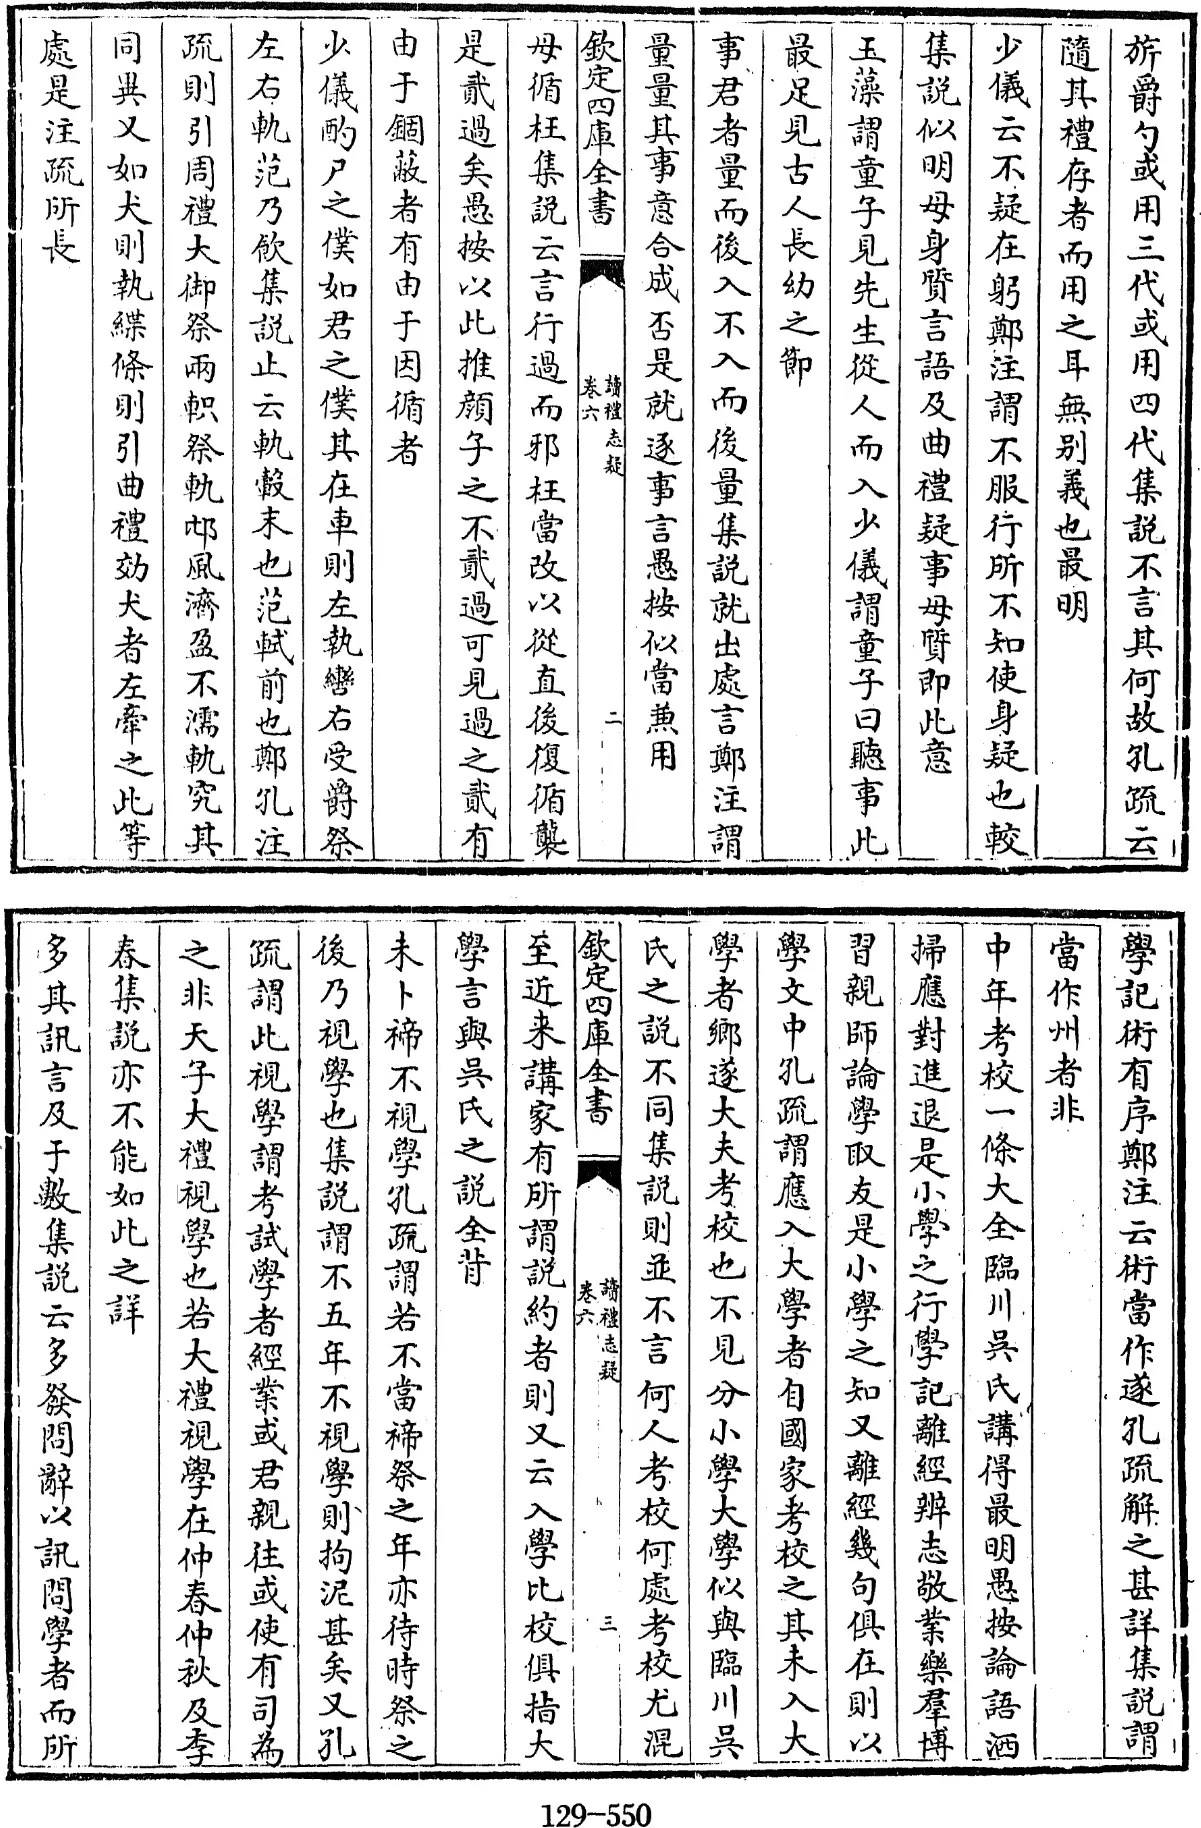 斾爵勺或用三代或用四代集說不言其何故孔疏云
隨其禮存者而用之耳無别義也最明
少儀云不疑在躬鄭注謂不服行所不知使身疑也較
集說似明毋身質言語及曲禮疑事毋質即此意
玉藻謂童子見先生從人而入少儀謂童子曰聽事此
最足見古人長幼之節
事君者量而後入不入而後量集說就出處言鄭注謂
量量其事意合成否是就逐事言愚按似當兼用
欽定四庫全書
讀禮志疑
卷六
二
毋循枉集說云言行過而邪枉當改以從直後復循襲
是貳過矣愚按以此推顏子之不貳過可見過之貳有
由于錮蔽者有由于因循者
少儀酌尸之僕如君之僕其在車則左執轡右受爵祭
左右軌范乃飲集說止云軌轂末也范軾前也鄭孔注
疏則引周禮大御祭兩軹祭軌邶風濟盈不濡軌究其
同異又如犬則執緤條則引曲禮効犬者左牽之此等
處是注疏所長
學記術有序鄭注云術當作遂孔疏解之甚詳集說謂
當作州者非
中年考校一條大全臨川吳氏講得最明愚按論語洒
掃應對進退是小學之行學記離經辨志敬業樂羣博
習親師論學取友是小學之知又離經幾句俱在則以
學文中孔疏謂應入大學者自國家考校之其未入大
學者鄉遂大夫考校也不見分小學大學似與臨川吳
氏之說不同集說則並不言何人考校何處考校尤混
欽定四庫全書
讀禮志疑
卷六
三
至近来講家有所謂說約者則又云入學比校俱指大
學言與吳氏之說全背
未卜禘不視學孔疏謂若不當禘祭之年亦待時祭之
後乃視學也集說謂不五年不視學則拘泥甚矣又孔
疏謂此視學謂考試學者經業或君親往或使有司為
之非天子大禮視學也若大禮視學在仲春仲秋及季
春集說亦不能如此之詳
多其訊言及于數集說云多發問辭以訊問學者而所
129-550